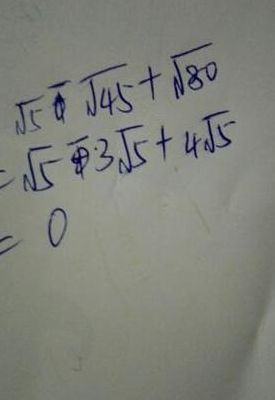 √5 - √45 + √80
= √5 - 3√5 + 4√5
= 0